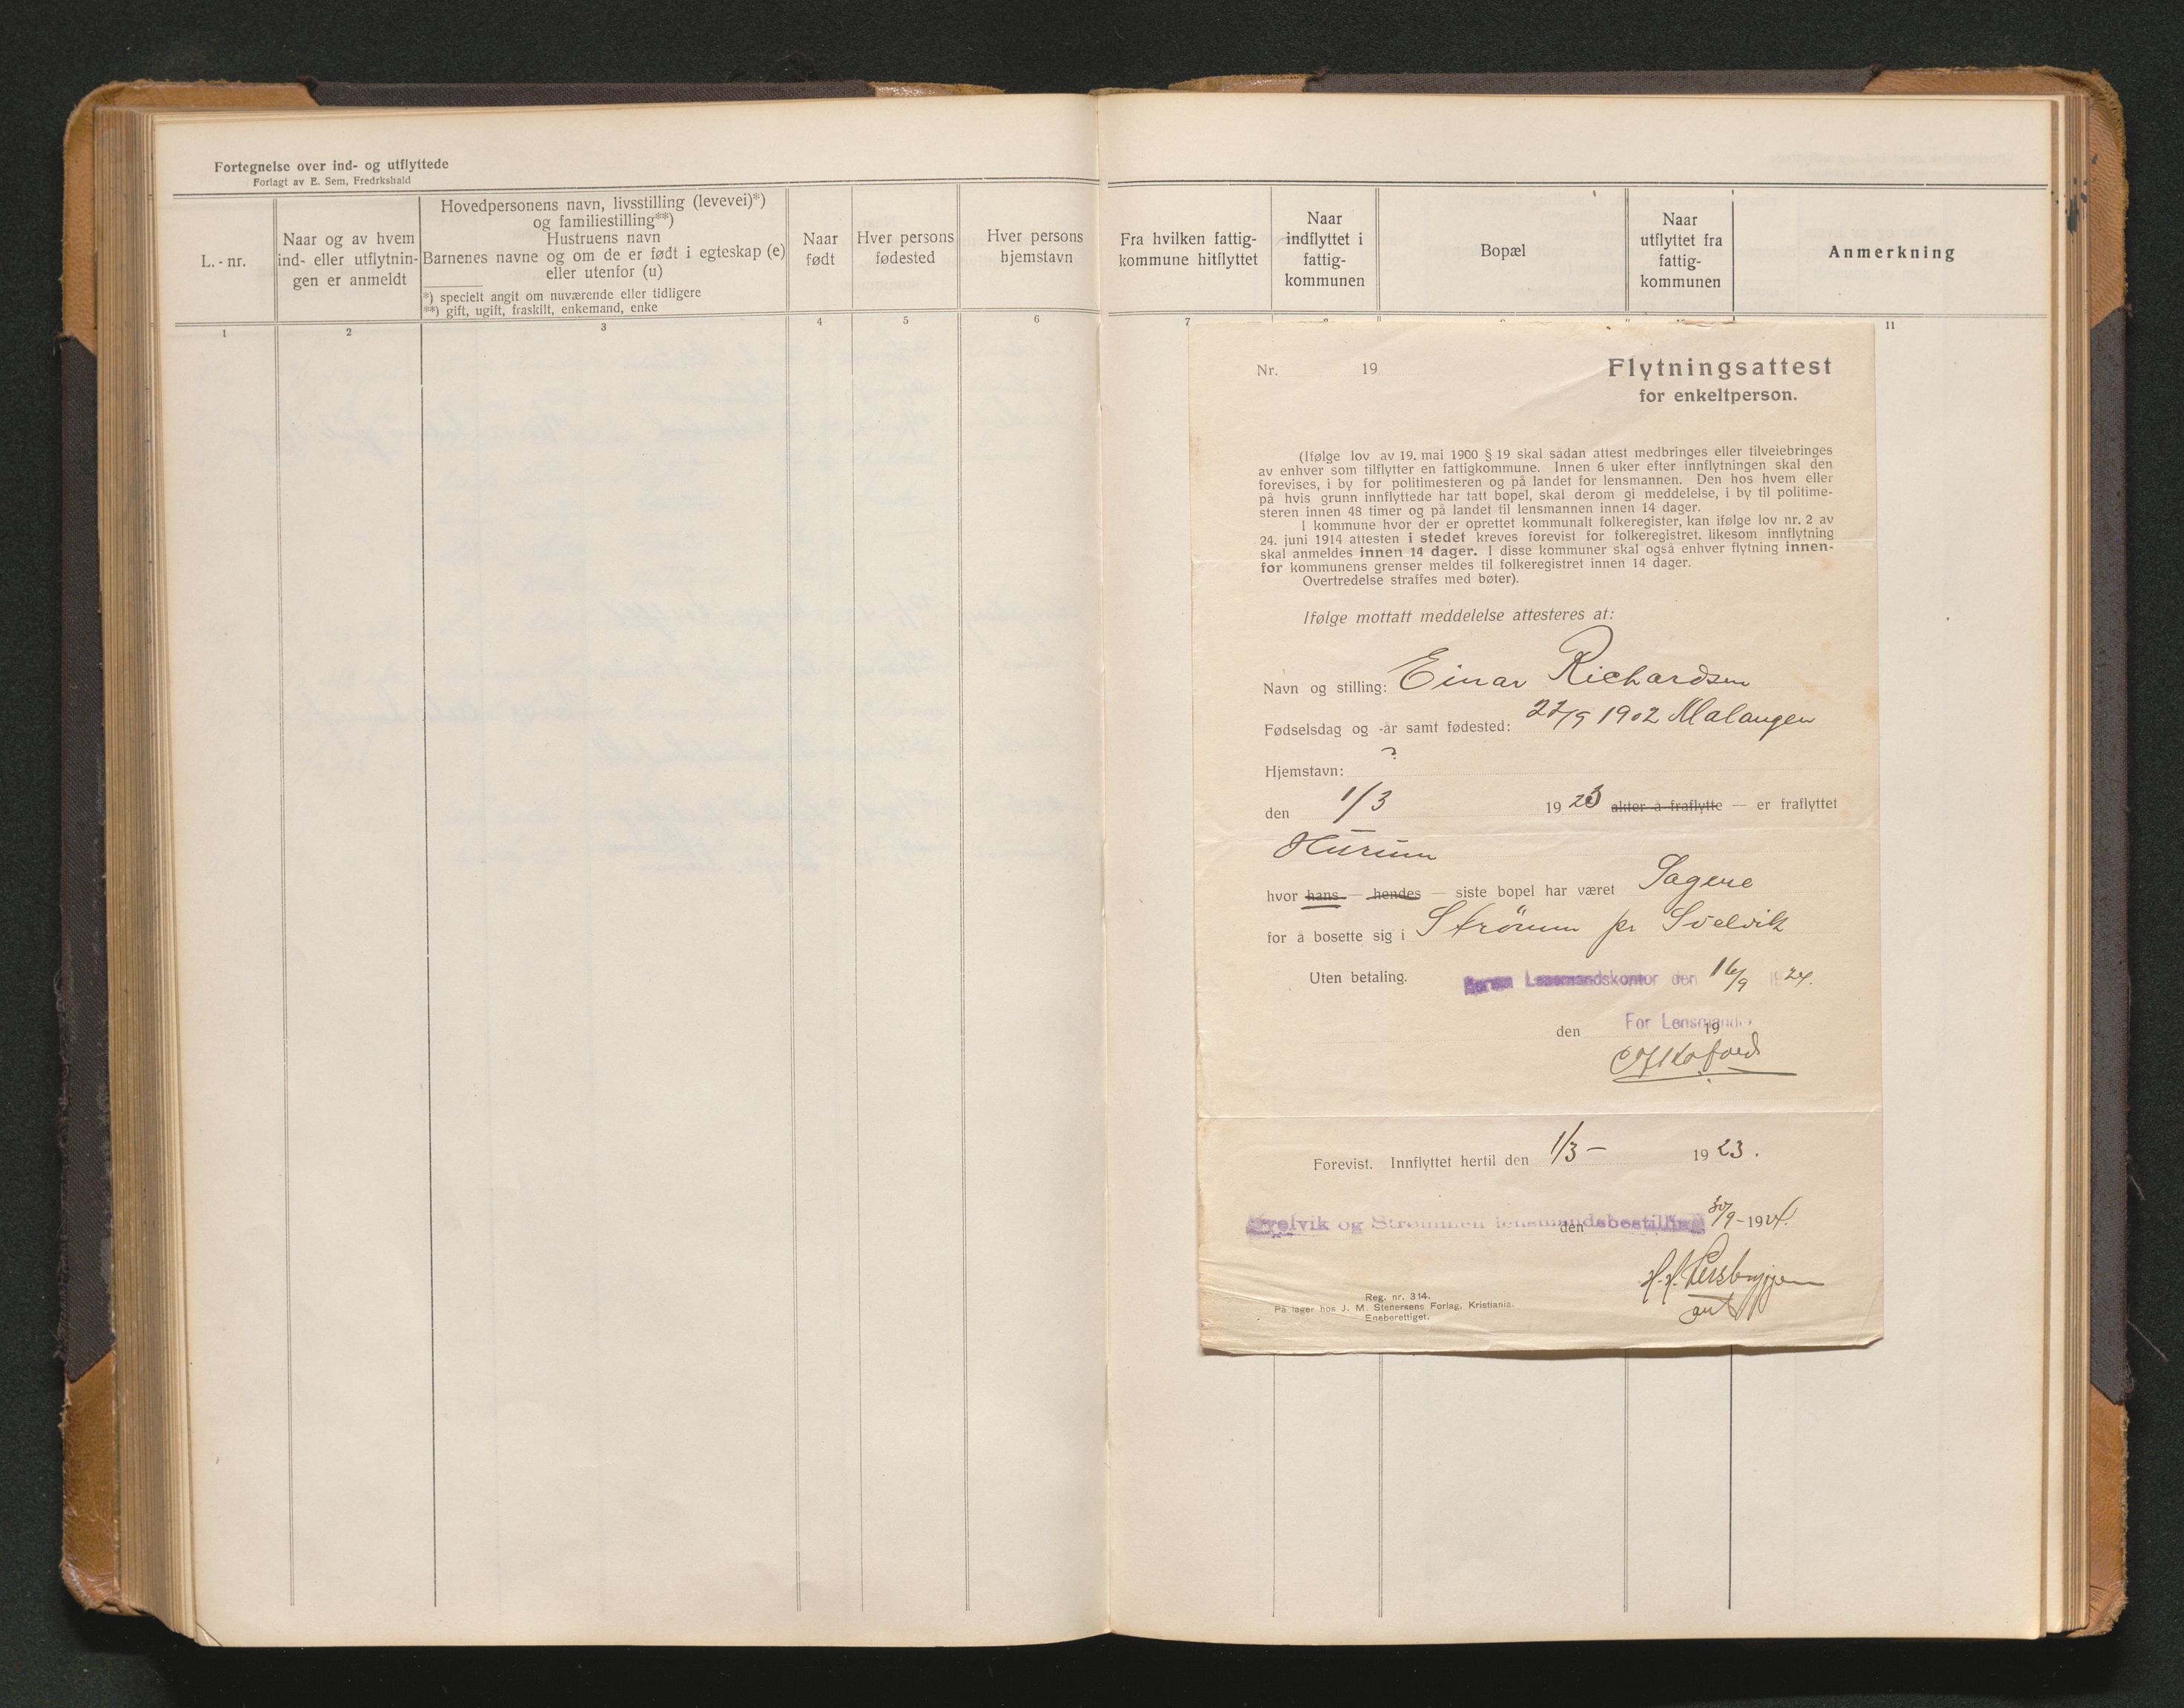 Fortegnelse over ind- og utflyttede
Forlagt av E. Sem, Fredrkshald
L. - nr.
Naar og av hvem
ind- eller utflytnin-
gen er anmeldt
Hovedpersonens navn, livsstilling (levevei)*)
og familiestilling**)
Hustruens navn
Barnenes navne og om de er født i egteskap (e)
eller utenfor (u)
*) specielt angit om nuværende eller tidligere
**) gift, ugift, fraskilt, enkemand, enke
Naar
født
Hver persons
fødested
Hver persons
hjemstavn
Fra hvilken fattig-
kommune hitflyttet
Naar
indflyttet i
fattig-
kommunen
Bopæl
Naar
utflyttet fra
fattig-
kommunen
Anmerkning
1 2 3 4 5 6 7 11
Nr. 19
Flytningsattest
for enkeltperson.
(Ifølge lov av 19. mai 1900 § 19 skal sådan attest medbringes eller tilveiebringes
av enhver som tilflytter en fattigkommune. Innen 6 uker efter innflytningen skal den
forevises, i by for politimesteren og på landet for lensmannen. Den hos hvem eller
på hvis grunn innflyttede har tatt bopel, skal derom gi meddelelse, i by til politime-
steren innen 48 timer og på landet til lensmannen innen 14 dager.
I kommune hvor der er oprettet kommunalt folkeregister, kan ifølge lov nr. 2 av
24. juni 1914 attesten i stedet kreves forevist for folkeregistret. likesom innflytning
skal anmeldes innen 14 dager. I disse kommuner skal også enhver flytning innen-
for kommunens grenser meldes til folkeregistret innen 14 dager.
Overtredelse straffes med bøter).
Ifølge mottatt meddelelse attesteres at:
Navn og stilling: Einar Richardsen
Fødselsdag og -år samt fødested: 22/9 1902 Malangen
Hjemstavn: ?
den 1/3 1923 akter å fraflytte — er fraflyttet
Hurum
hvor hans — hendes — siste bopel har været Sagene
for å bosette sig i Strömm pr Svelvik
Uten betaling. Lensmandskontor den 16/9 1924.
den For Lensmanden 19
Forevist. Innflyttet hertil den 1/3 - 1923.
Svelvik og Strømmen lensmandsbestilling den 30/9-1924.
H. H.
Reg. nr. 314.
På lager hos J. M. Stenersens Forlag, Kristiania.
Eneberettiget.